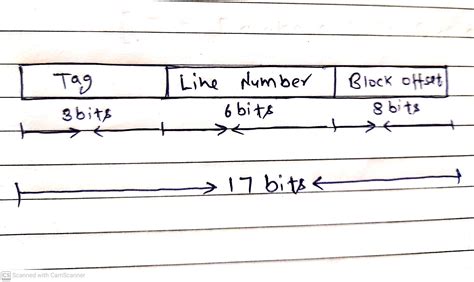 Tag Line Number Block offset
3bits 6bits 8bits
17 bits
CS Scanned with CamScanner